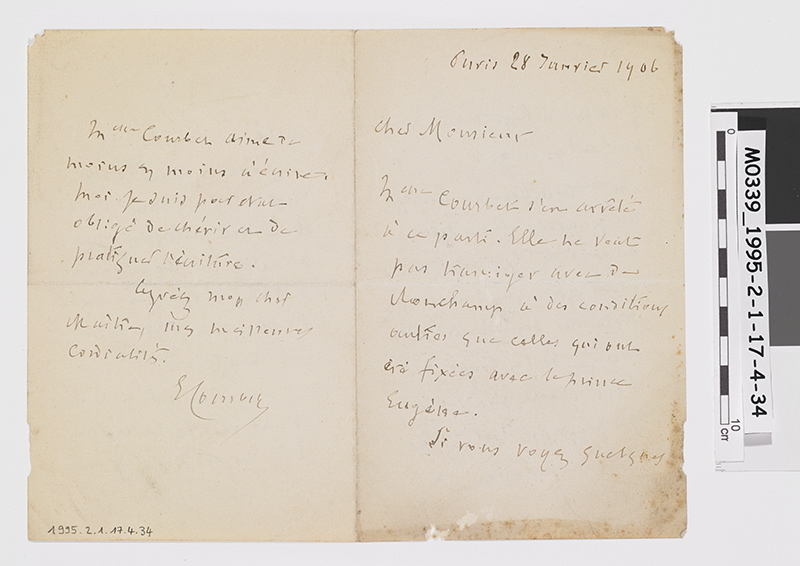 Paris 28 Janvier 1906
cher Monsieur
Mme s'en arrêté
à ce parti. Elle ne veut
pas transiger avec de
à des conditions
autres que celles qui ont
été fixées avec le prince
Eugène.
Si vous voyez quelques
Mme aime de
moins en moins à écrire.
Moi je suis
obligé de chérir et de
pratiquer l'écriture.
Agréez mon cher
Maître, mes meilleures
cordialités.
1995.2.1.17.4.34
M0339_1995-2-1-17-4-34
0
10
cm